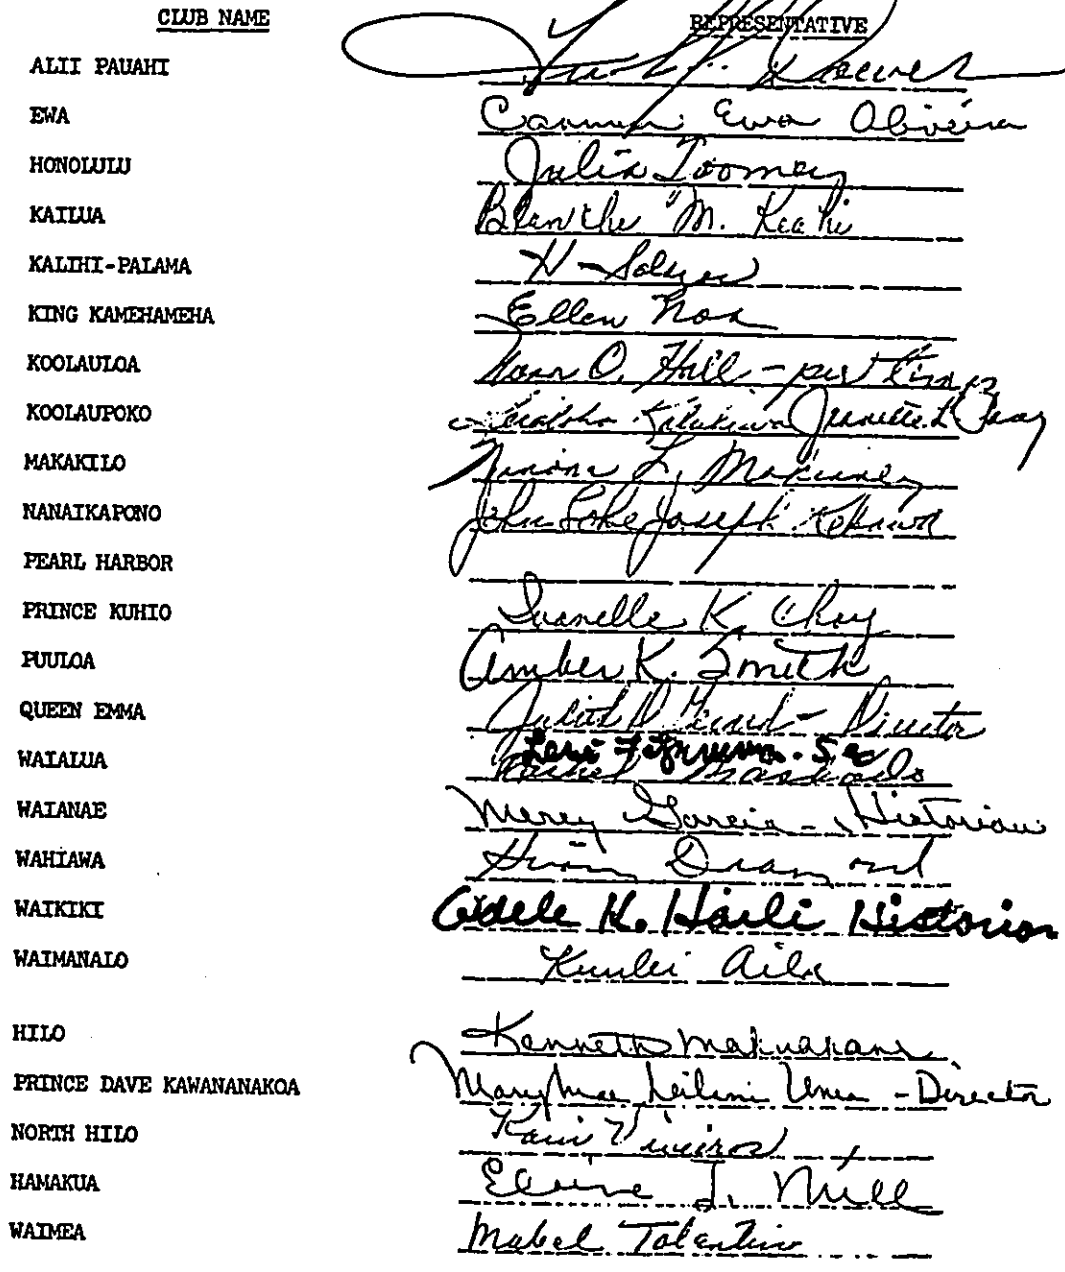 CLUB NAME REPRESENTATIVE
ALII PAUAHI
EWA Carmen Ewa Oliveira
HONOLULU Julia Toomey
KAILUA Blanche "M. Keahi
KALIHI-PALAMA H
KING KAMEHAMEHA Ellen Noa
KOOLAULOA O. Hall -
KOOLAUPOKO Jeanette L.
MAKAKILO L.
NANAIKAPONO John Joseph
PEARL HARBOR
PRINCE KUHIO Luanelle K. Choy
PUULOA Amber K. Smith
QUEEN EMMA Judith - Director
WAIALUA
WAIANAE Mercy Garcia - Historian
WAHIAWA
WAIKIKI Adele K. Haili Historian
WAIMANALO Kuulei Aila
HILO Kenneth Makuakane
PRINCE DAVE KAWANANAKOA Mary Mae Leilani - Director
NORTH HILO Kaui Vieiros
HAMAKUA Elaine
WAIMEA Mabel Tolentino